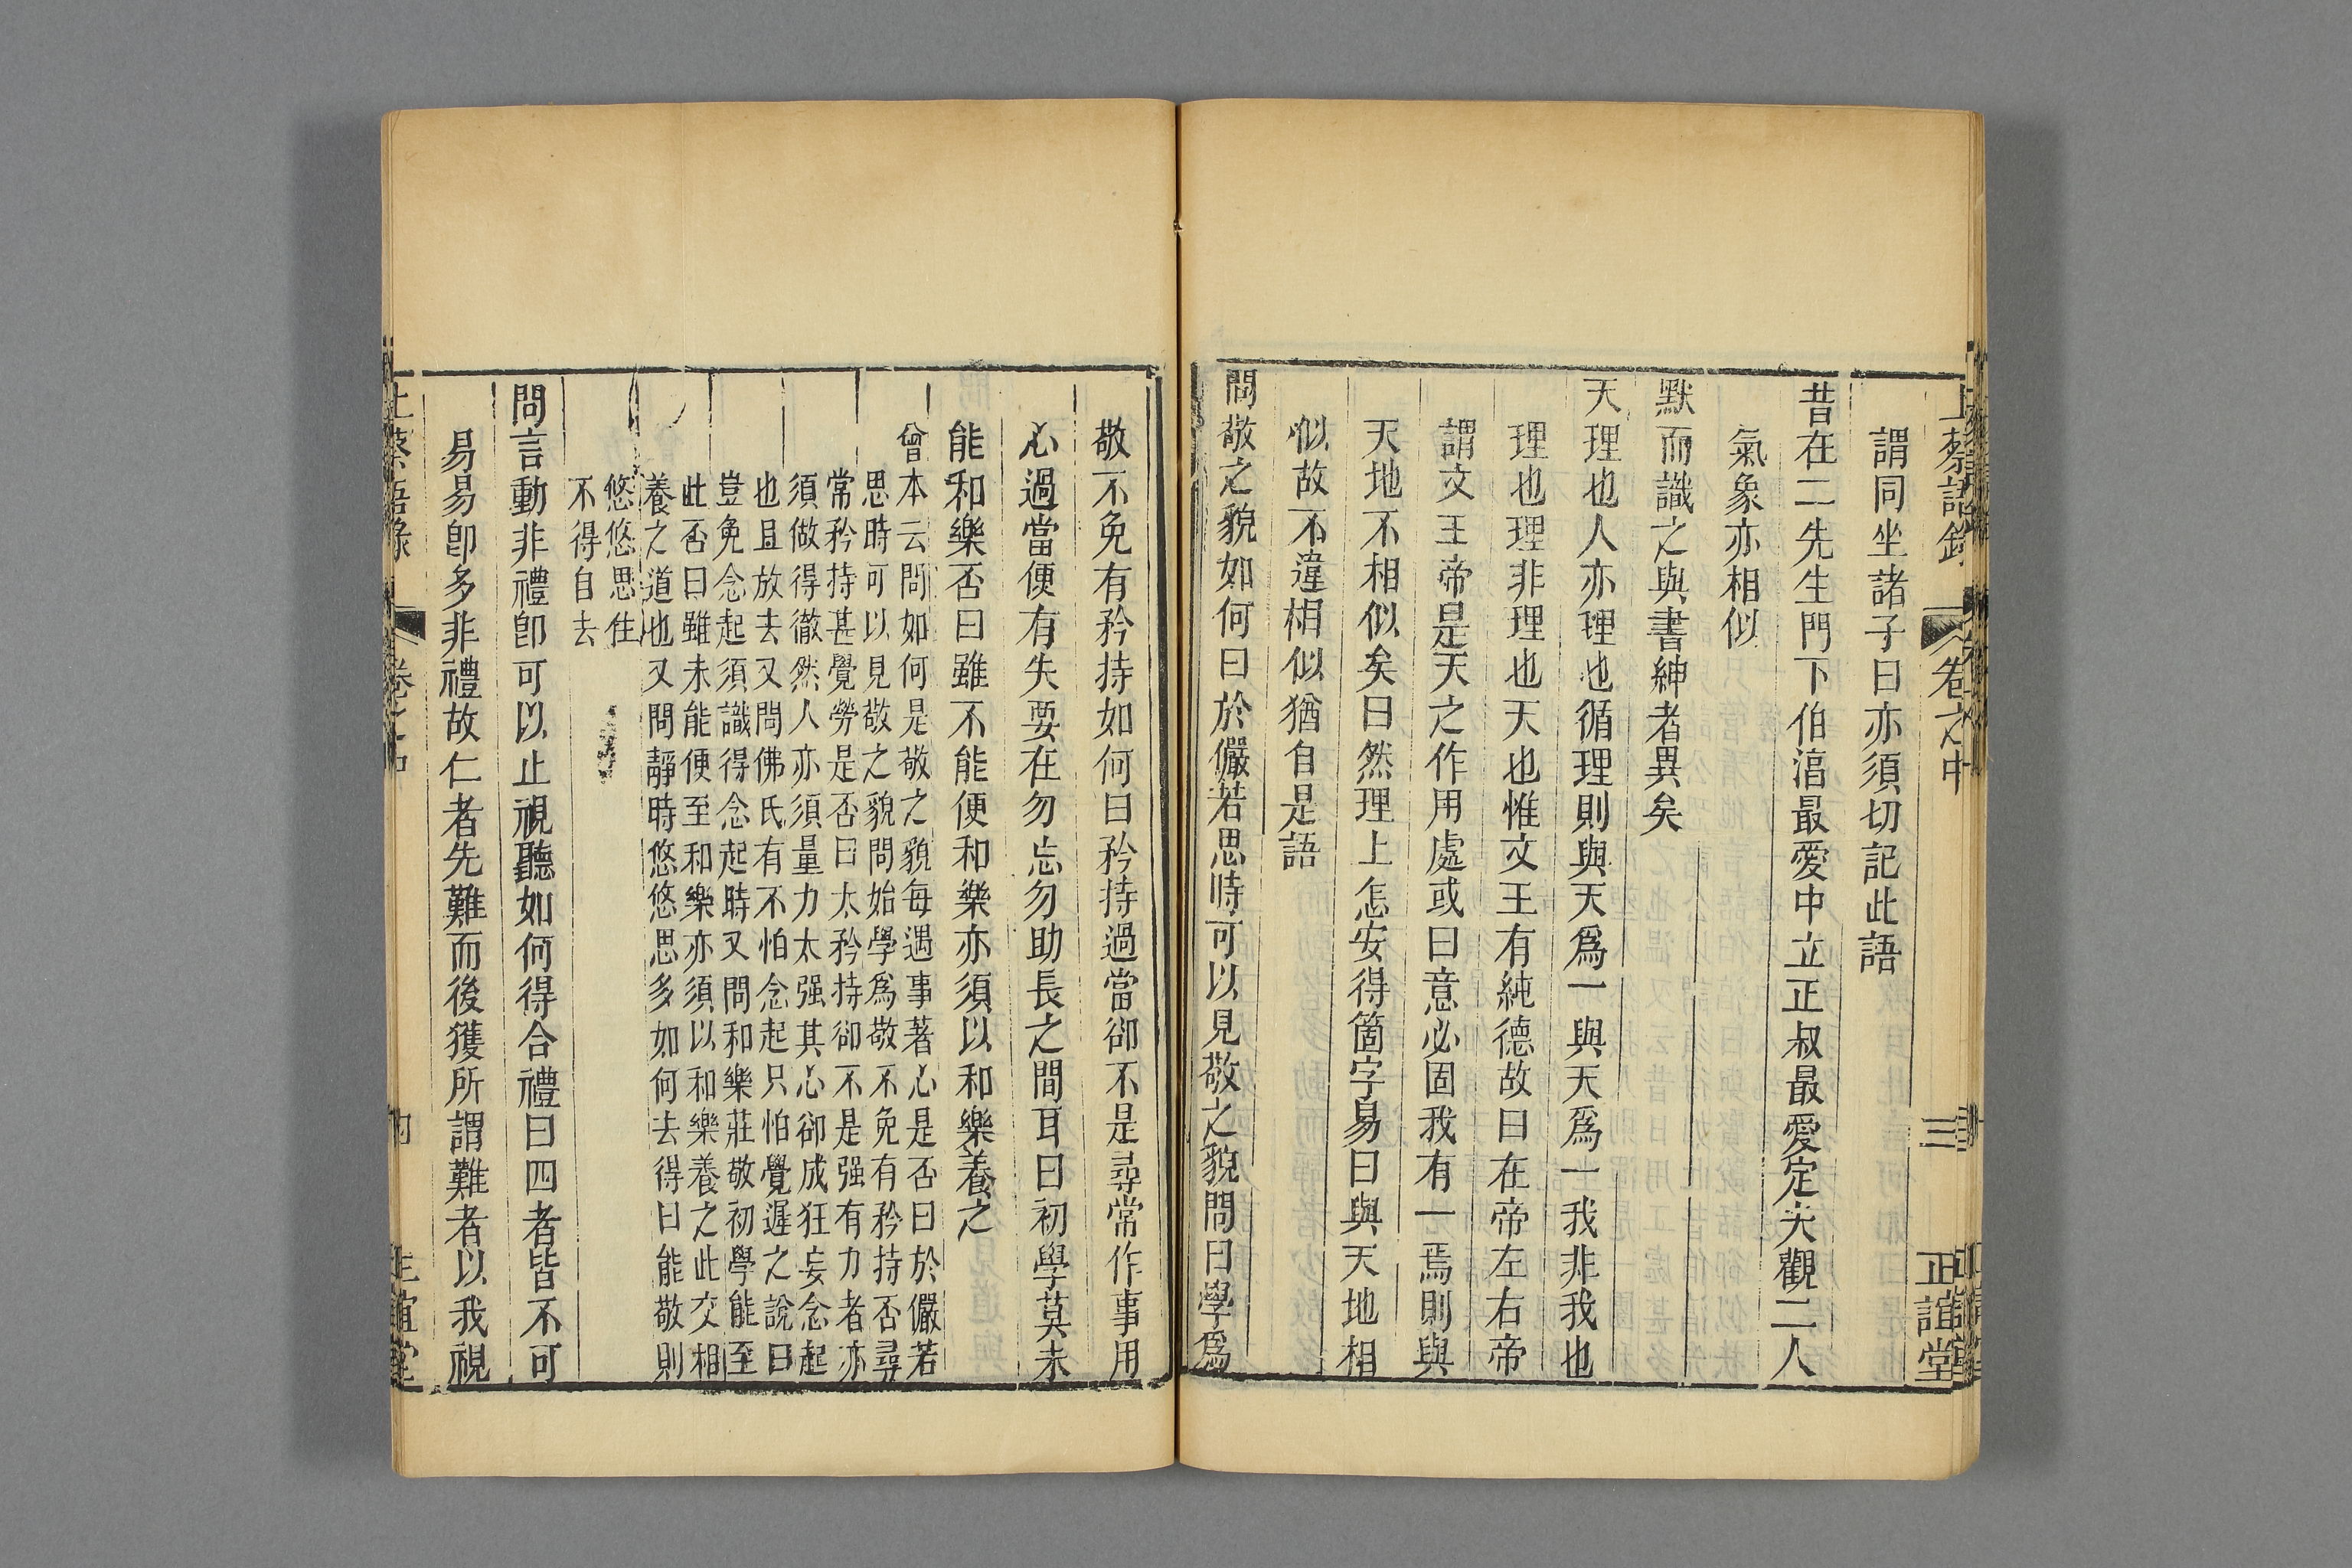 上蔡語錄 卷之中 三 正誼堂
謂同坐諸子曰亦須切記此語
昔在二先生門下伯淳最愛中立正叔最愛定夫觀二人
氣象亦相似
默而識之與書紳者異矣
天理也人亦理也循理則與天爲一與天爲一我非我也
理也理非理也天也惟文王有純德故曰在帝左右帝
謂文王帝是天之作用處或曰意必固我有一焉則與
天地不相似矣曰然理上怎安得箇字易曰與天地相
似故不違相似猶自是語
問敬之貌如何曰於儼若思時可以見敬之貌問曰學爲
敬不免有矜持如何曰矜持過當卻不是尋常作事用
心過當便有失要在勿忘勿助長之間耳曰初學莫未
能和樂否曰雖不能便和樂亦須以和樂養之
曾本云問如何是敬之貌每遇事著心是否曰於儼若
思時可以見敬之貌問始學爲敬不免有矜持否尋
常矜持甚覺勞是否曰太矜持卻不是强有力者亦
須做得徹然人亦須量力太强其心卻成狂妄念起
也且放去又問佛氏有不怕念起只怕覺遲之說曰
豈免念起須識得念起時又問和樂莊敬初學能至
此否曰雖未能便至和樂亦須以和樂養之此交相
養之道也又問靜時悠悠思多如何去得曰能敬則
悠悠思住
不得自去
問言動非禮卽可以止視聽如何得合禮曰四者皆不可
易易卽多非禮故仁者先難而後獲所謂難者以我視
上蔡語錄 卷之中 四 正誼堂